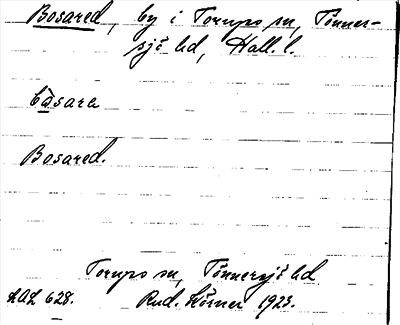 Bosared, by i Torups sn, Tönner-
sjö hd, Hall. l.
båsara
Bosared.
Torups sn, Tönnersjö hd
LAL 628. Rud. Körner 1923.